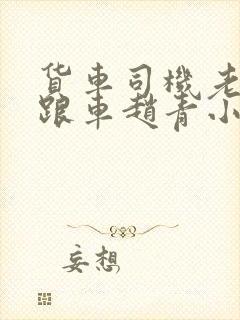 货车司機老
跟車趙青小
妄想